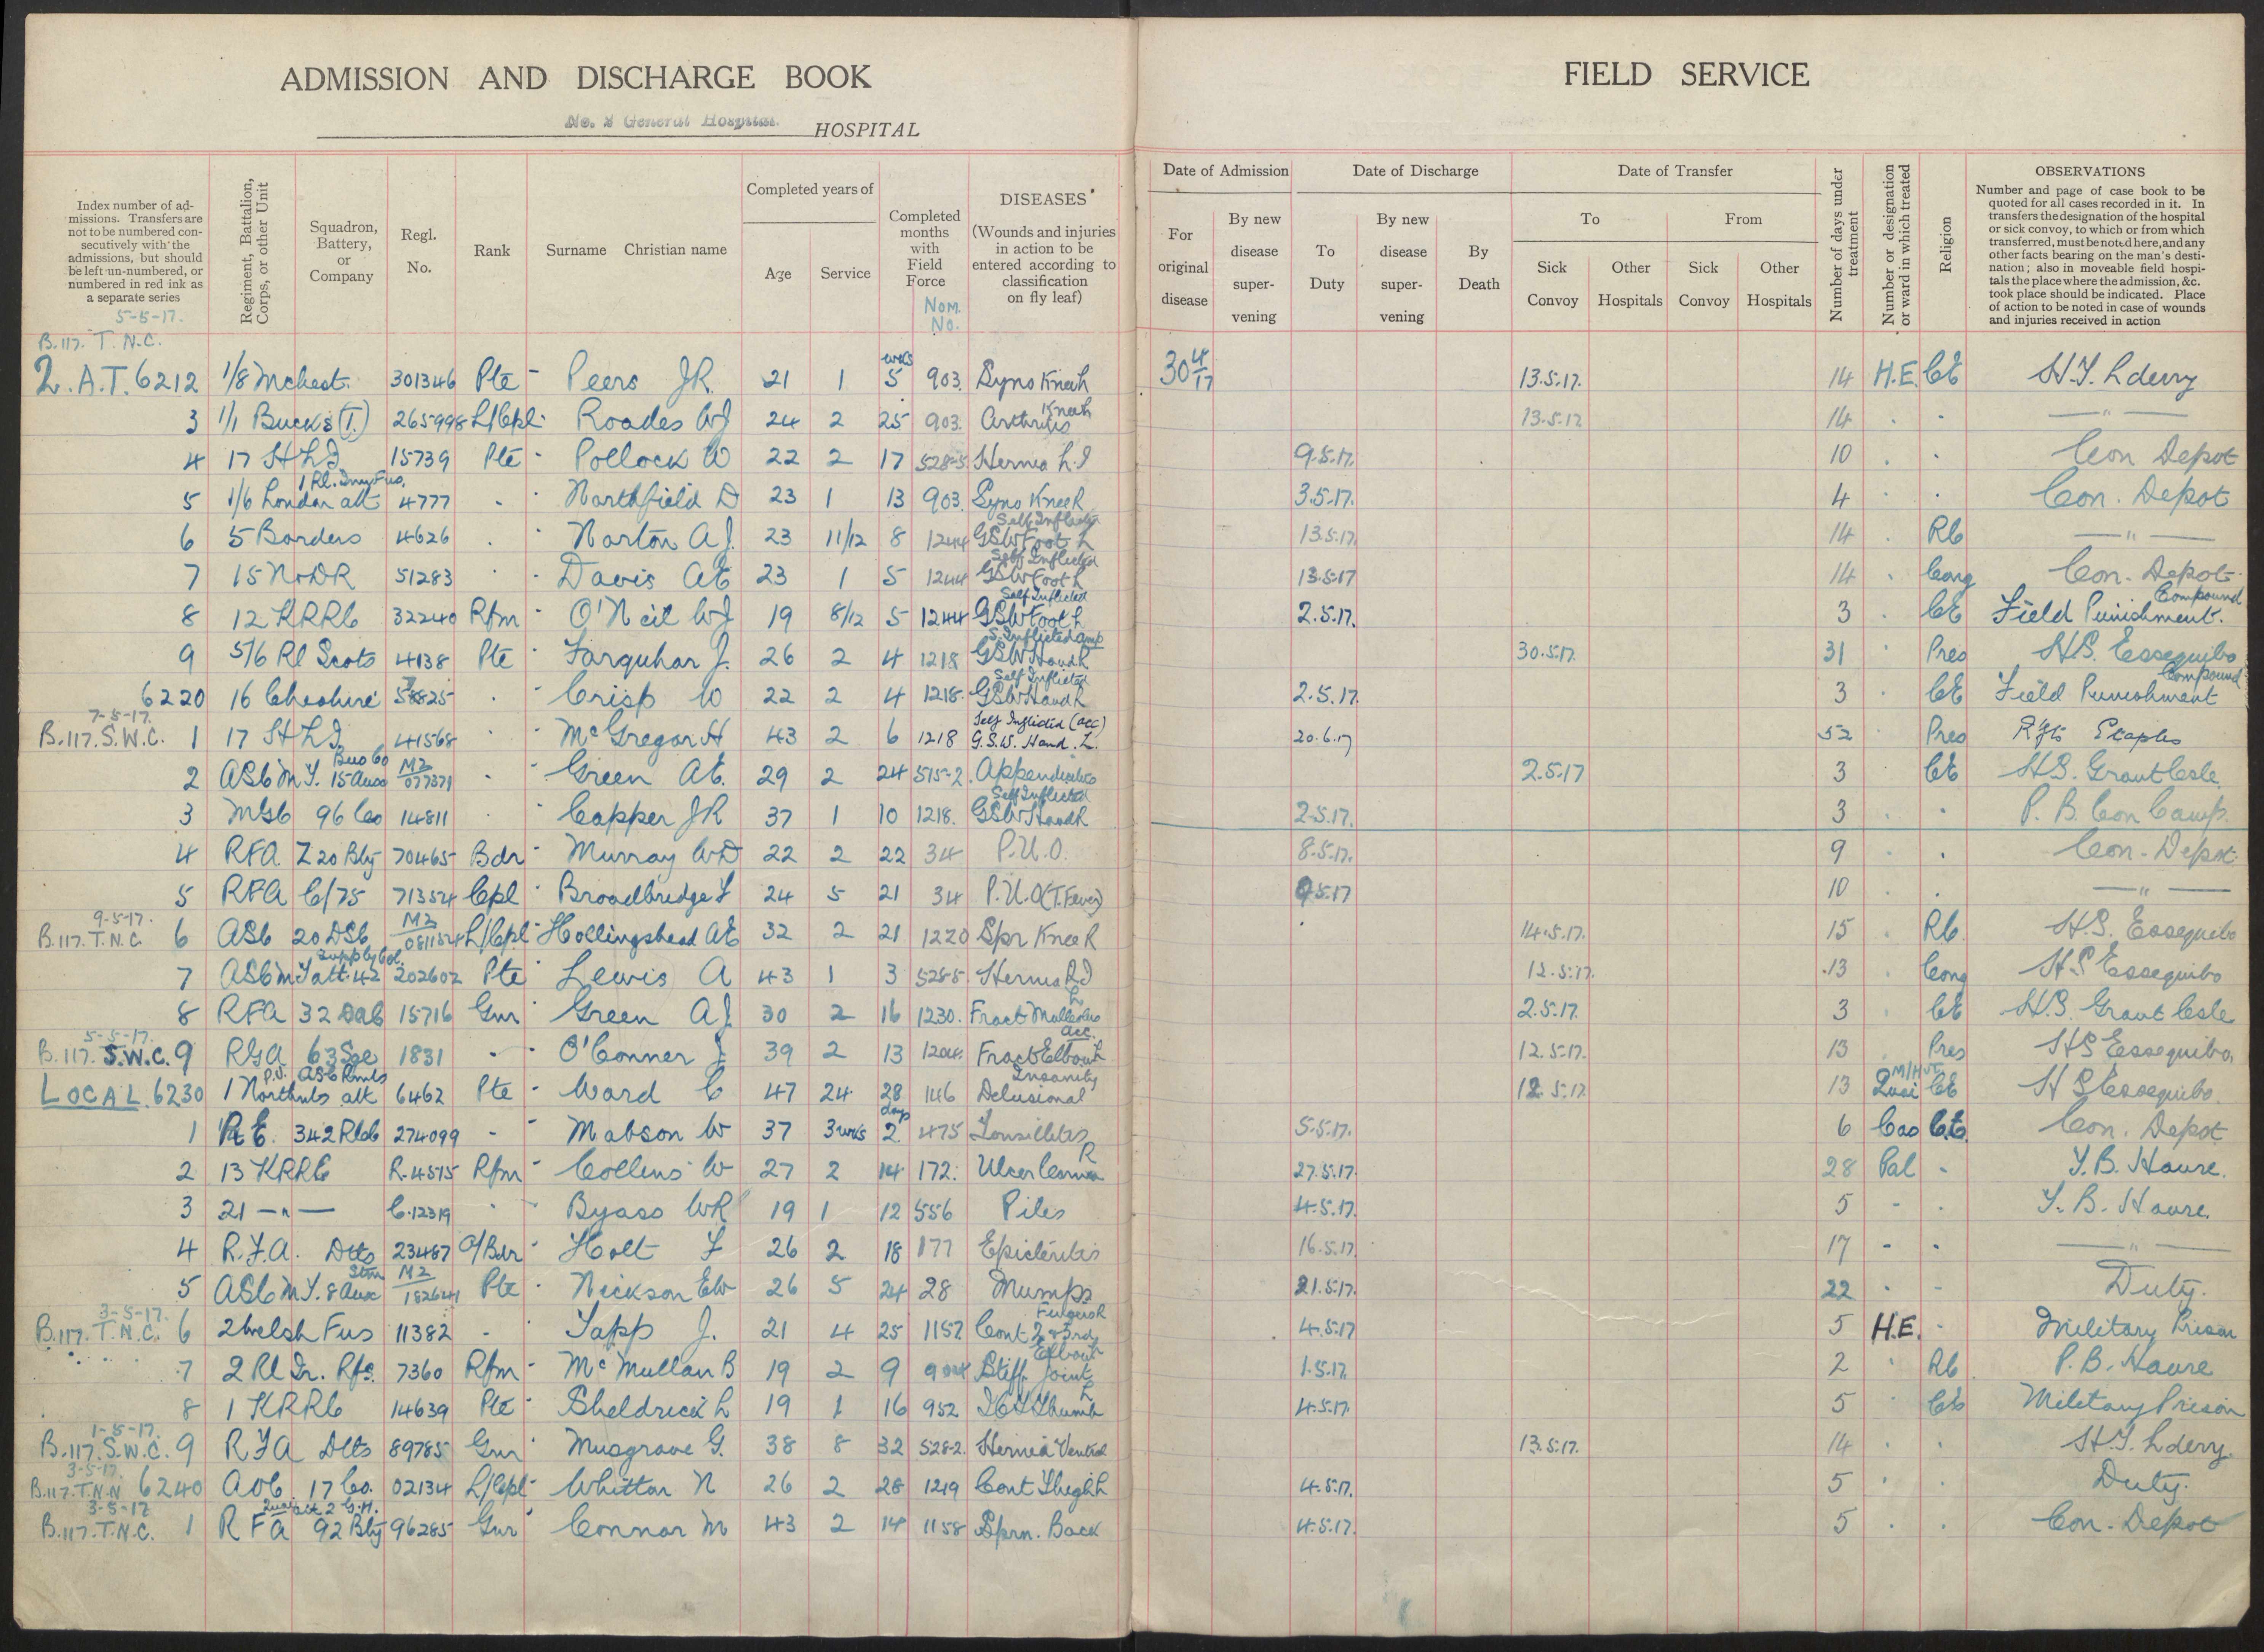 ADMISSION AND DISCHARGE BOOK
No. 2 General Hospital. HOSPITAL
FIELD SERVICE
Index number of admissions. Transfers are not to be numbered consecutively with the admissions, but should be left un-numbered, or numbered in red ink as a separate series
Regiment, Battalion, Corps, or other Unit
Squadron, Battery, or Company
Regl. No.
Rank
Surname Christian name
Completed years of
Age
Service
Completed months with Field Force
Nom. No.
DISEASES
(Wounds and injuries in action to be entered according to classification on fly leaf)
Date of Admission
For original disease
By new disease supervening
Date of Discharge
To Duty
By new disease supervening
By Death
Date of Transfer
To
Sick Convoy
Other Hospitals
From
Sick Convoy
Other Hospitals
Number of days under treatment
Number or designation or ward in which treated
Religion
OBSERVATIONS
Number and page of case book to be quoted for all cases recorded in it. In transfers the designation of the hospital or sick convoy, to which or from which transferred, must be noted here, and any other facts bearing on the man's destination; also in moveable field hospitals the place where the admission, &c. took place should be indicated. Place of action to be noted in case of wounds and injuries received in action
5-5-17.
B.117. T.N.C.
2.A.T. 6212 1/8 Mchest. 301346 Pte - Peers J R. 21 1 wks 5 903. Syno Knee L 30 4/17 13.5.17. 14 H.E. CE H.S. Lderry
3 1/1 Bucks (T.) 265998 L/Cpl - Roades W J 24 2 25 903. Arthritis Knee L 13.5.17 14 . . — " —
4 17 H L I 15739 Pte - Pollock W 22 2 17 528-5. Hernia L. I 9.5.17. 10 . . Con Depot
5 1/6 London att 1 Rl. Innis Fus. 4777 . - Northfield D 23 1 13 903. Syno Knee R 3.5.17. 4 . . Con. Depot
6 5 Borders 4626 . - Norton A J. 23 11/12 8 1244 GSW Foot L Self Inflicted 13.5.17. 14 . RC — " —
7 15 N&DR 51283 . - Davis A E 23 1 5 1244 GSW Foot L Self Inflicted 13.5.17 14 . Cong Con. Depot
8 12 KRRC 32240 Rfm - O'Neil W J 19 8/12 5 1244 GSW Foot L Self Inflicted 2.5.17. 3 . CE Field Punishment. Compound
9 5/6 Rl Scots 4138 Pte - Farquhar J. 26 2 4 1218 GSW Hand R S. Inflicted amp 30.5.17. 31 Pres H.S. Essequibo
6220 16 Cheshire . - Crisp W 22 2 4 1218. GSW Hand R Self Inflicted 2.5.17. 3 . CE Field Punishment Compound
7-5-17.
B.117. S.W.C. 1 17 H L I 41568 . - McGregor H 43 2 6 1218 G.S.W. Hand. L. Self Inflicted (acc) 20.6.17 52 Pres Rfts Etaples
2 ASC M.T. 15 Auxo Bus Co M2/077371 . - Green A E. 29 2 24 515-2. Appendicitis 2.5.17 3 CE H.S. Grantully Castle
3 MGC 96 Co 14811 . - Capper J R 37 1 10 1218. GSW Hand R Self Inflicted 2.5.17. 3 . . P. B. Con Camp.
4 RFA. Z 20 Bty 70465 Bdr - Murray W D 22 2 22 34 P.U.O. 8.5.17. 9 . . Con. Depot.
5 RFA C/75 71354 Cpl - Broadbridge F 24 5 21 34 P.U.O (T. Fever) 9.5.17 10 . . — " —
9-5-17.
B.117. T.N.C. 6 ASC 20 DSC M2/081152 L/Cpl - Hollingshead A E 32 2 21 1220 Spr Knee R 14.5.17. 15 . RC. H.S. Essequibo
7 ASC M T att 42 Supply Col. 202602 Pte - Lewis A 43 1 3 528-5. Hernia R I 12.5.17. 13 . Cong H S Essequibo
8 RFA 32 DAC 15716 Gnr - Green A J. 30 2 16 1230. Fract Malleolus L 2.5.17. 3 . CE H.S. Grantully Castle
5-5-17.
B.117. S.W.C. 9 RGA 63 Sge 1831 . - O'Conner J 39 2 13 1204. Fract Elbow L acc. 12.5.17. 13 Pres H S Essequibo.
LOCAL. 6230 1 Northmbs att P.B. ASC Rmts 6462 Pte - Ward C 47 24 28 146 Delusional Insanity 12.5.17. 13 M/Hut Quai CE H S Essequibo.
1 R.E. 342 RCC 274099 - Mabson W 37 3 wks days 2 475 Tonsillitis 5.5.17. 6 Cas C.E. Con. Depot
2 13 KRRC R.4515 Rfm - Collins W 27 2 14 172. Ulcer Cornea R 27.5.17. 28 Pal . T.B. Havre.
3 21 — " — C.12319 . - Byass W R 19 1 12 556 Piles 4.5.17. 5 - . T.B. Havre.
4 R.F.A. Dtls 23487 A/Bdr - Holt F 26 2 18 177 Episcleritis 16.5.17. 17 - . — " —
5 ASC M.T. 8 Aux Stm M2/182641 Pte - Nickson E W 26 5 24 28 Mumps 21.5.17. 22 . - Duty.
3-5-17.
B.117. T.N.C. 6 2 Welsh Fus 11382 - - Tapp J. 21 4 25 1157 Cont 2 & 3rd Fingers R 4.5.17 5 H.E. - Military Prison
7 2 Rl Ir. Rfs. 7360 Rfm - McMullan B 19 2 9 904 Stiff Joint Elbow L 1.5.17. 2 . RC P.B. Havre
8 1 KRRC 14639 Pte - Sheldrick L 19 1 16 952 ICT Thumb L 4.5.17. 5 . CE Military Prison
1-5-17.
B.117. S.W.C. 9 R F A Dtls 89785 Gnr - Musgrave G. 38 8 32 528-2. Hernia Ventral 13.5.17. 14 . . H.S. Lderry.
3-5-17.
B.117. T.N.N 6240 AOC. 17 Co. 02134 L/Cpl - Whitton N 26 2 28 1219 Cont Thigh L 4.5.17. 5 . . Duty.
3-5-17
B.117. T.N.C. 1 R F A 92 Bty Quai att 2 G.H. 96285 Gnr - Connor M 43 2 14 1158 Sprn. Back 4.5.17. 5 . . Con. Depot